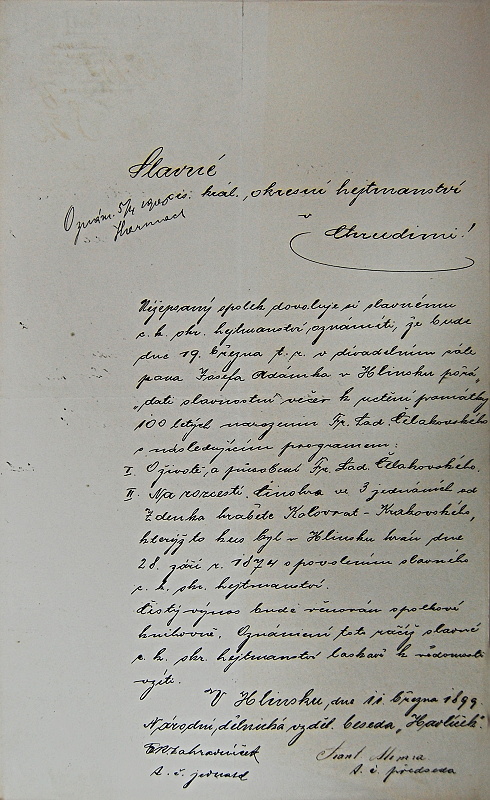 Slavné
cis. král. okresní hejtmanství
v
Chrudimi!
Oznám. 5/4
Nížepsaný spolek dovoluje si slavnému
c. k. okr. hejtmanství oznámiti, že bude
dne 19. března t. r. v divadelním sále
pana Josefa Adámka v Hlinsku pořá-
„dati slavnostní“ večer k uctění památky
100 letých narozenin Fr. Lad. Čelakovského
s následujícím programem:
I. O životě a působení Fr. Lad. Čelakovského.
II. Na rozcestí. Činohra ve 3 jednáních od
Zdenka hraběte Kolovrat-Krakovského,
kterýžto kus byl v Hlinsku hrán dne
28. září r. 1874 s povolením slavného
c. k. okr. hejtmanství.
Čistý výnos bude věnován spolkové
knihovně. Oznámení toto ráčiž slavné
c. k. okr. hejtmanství laskavě k vědomosti
vzíti.
V Hlinsku, dne 11. března 1899.
Národní dělnická vzděl. beseda „Havlíček“.
t. č. jednatel
t. č. předseda